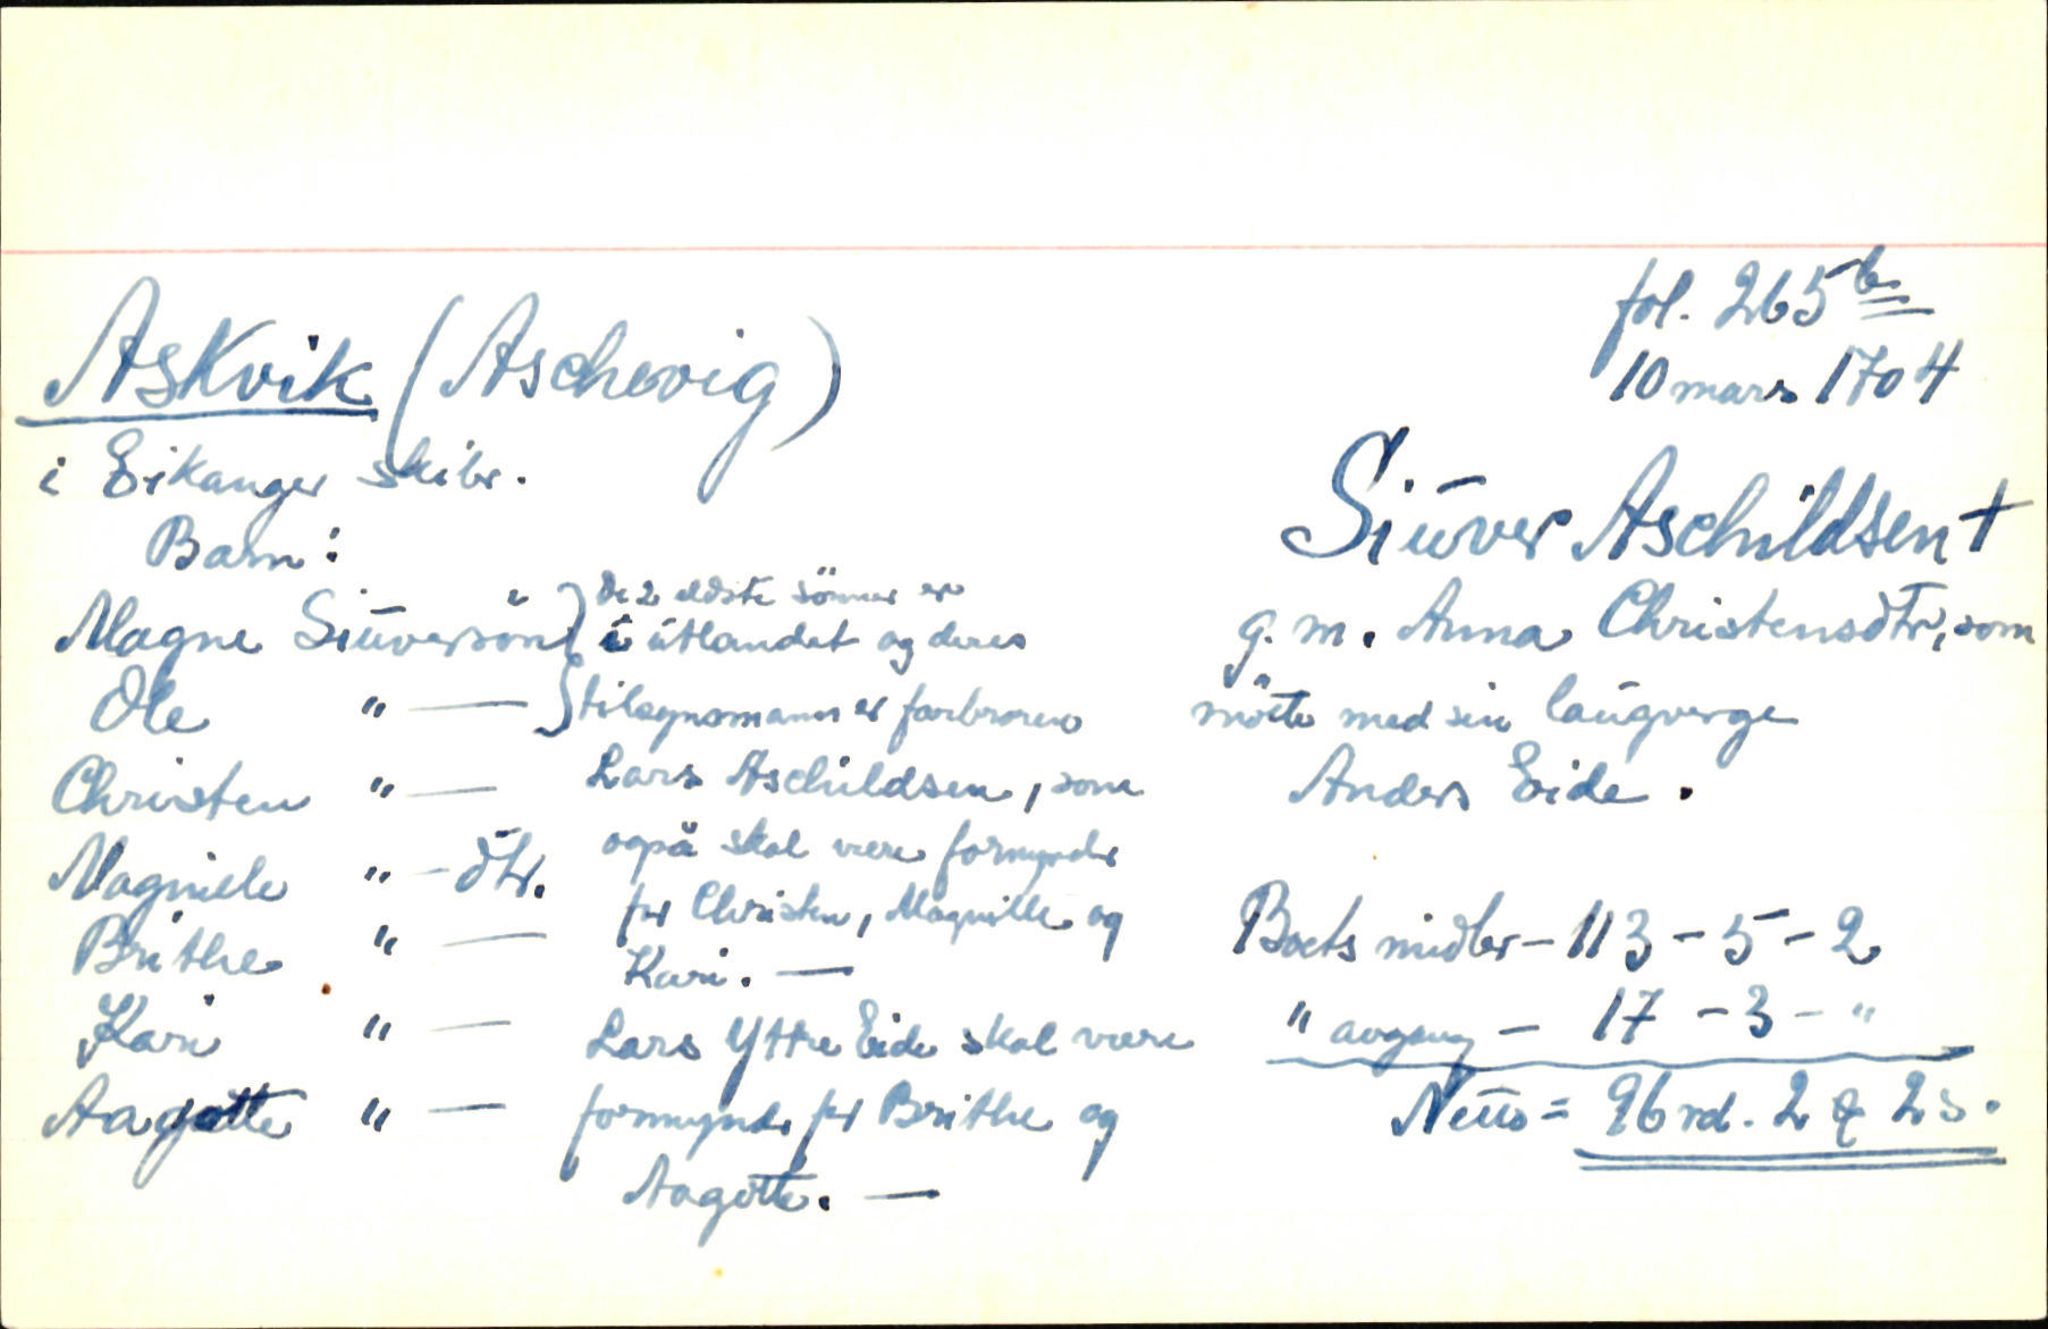 fol. 265b
10 mars 1704
Askvik (Aschevig)
i Eikanger skibr.
Siūver Aschildsen +
g. m. Anna Christensdtr, som
møtte med sin laūgverge
Anders Eide.
Barn:
Magne Siūverson
Ole " —
Christen " —
Magniele " - dtr.
Brithe " —
Kari " —
Aagotte " —
De 2 eldste sönner er
i utlandet og deres
tilsynsmann er farbroren
Lars Aschildsen, som
også skal være formynder
for Christen, Magnille og
Kari. —
Lars Yttre Eide skal være
formynder for Brithe og
Aagotte. —
Boets midler - 113 - 5 - 2
" avgang - 17 - 3 - "
= 96 rd. 2 2 s.